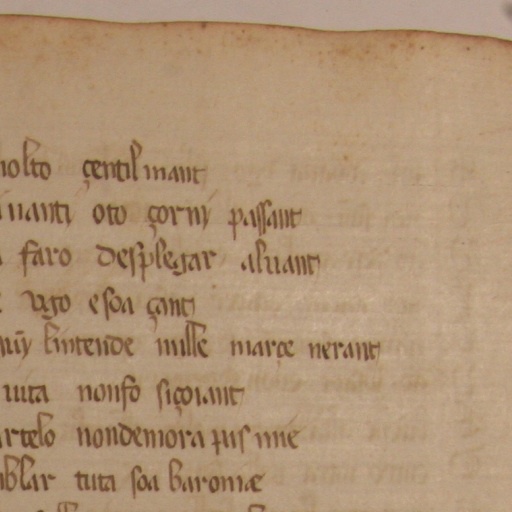 molto çentil mant
inanti oto çorni passant
faro desplegar aluant
Vgo e soa çant
lintende mille marçe nerant
uita nonfo si çoiant
artelo nondemora pas mie
blar tuta soa baronie